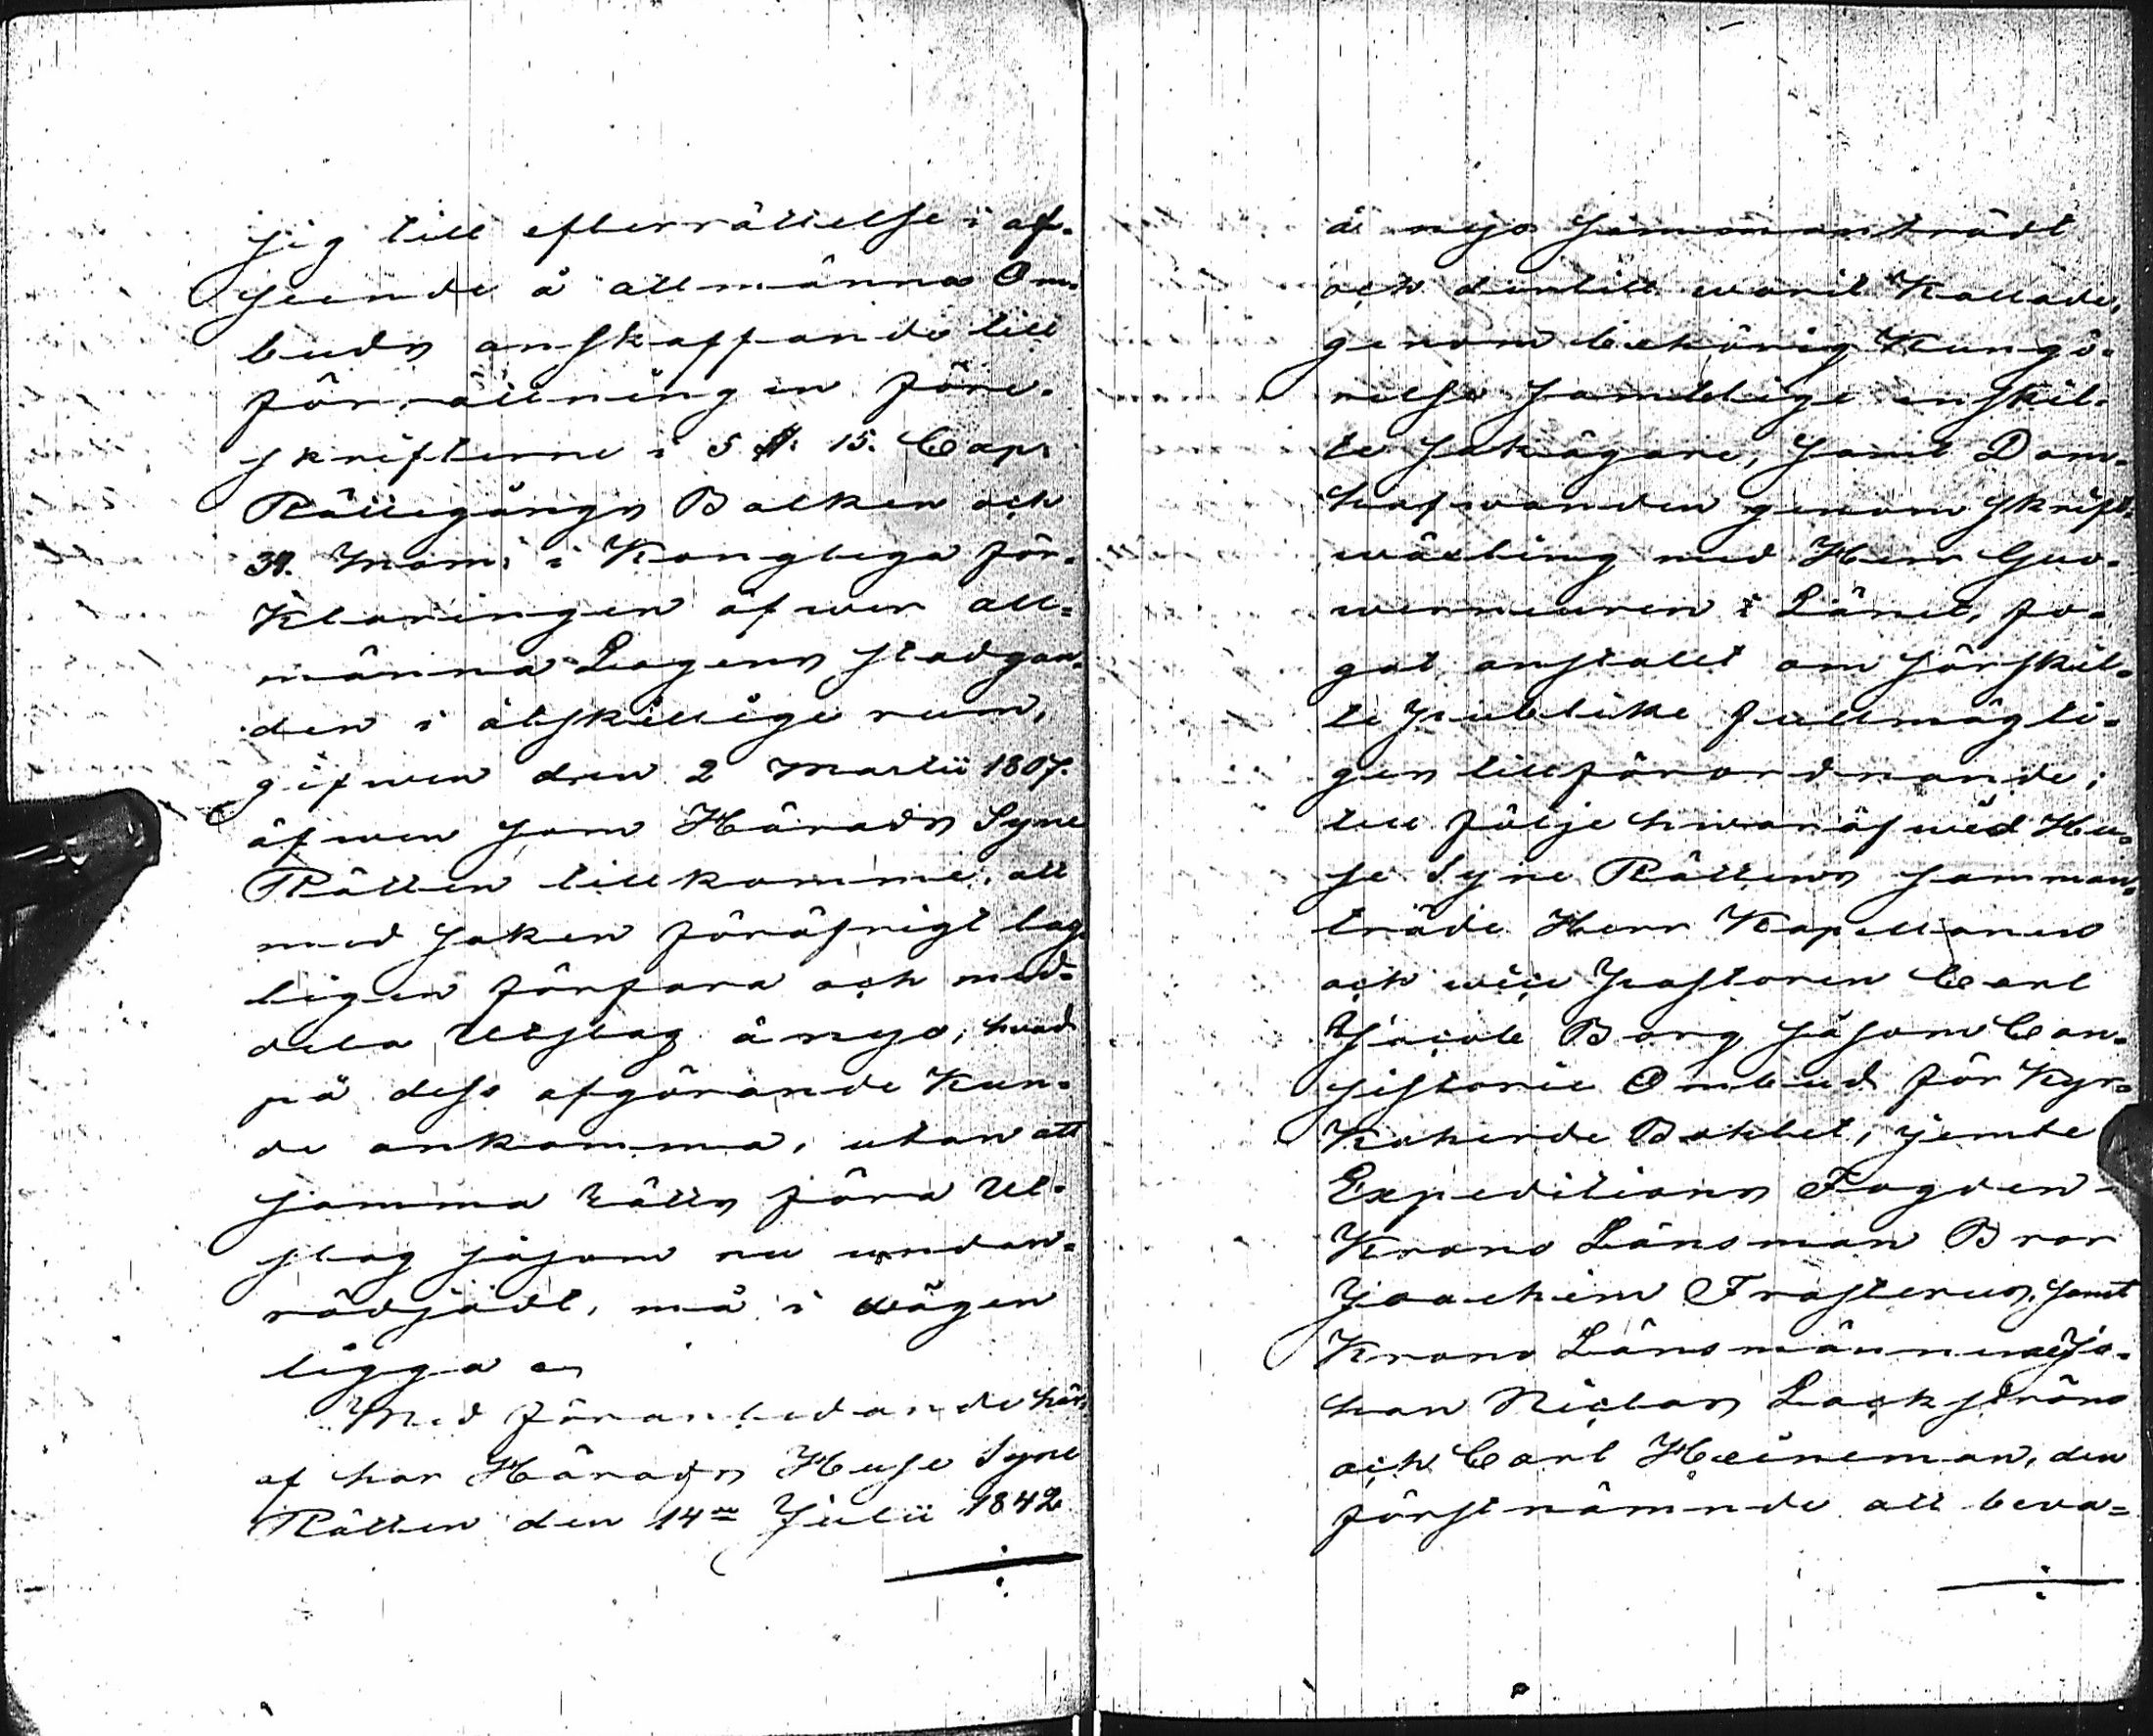 sig till efterrättelse i af-
seende å allmänna Om-
buds anskaffande till
förrättningen före-
skrifterne i 5 §. 15. Cap.
Rättegångs Balken och
39. Mom: i Kongliga för-
klaringen öfwer all-
männa Lagens stadgan-
den i åtskillige rum,
gifwen den 2 Martii 1807.
äfwen som Härads Syne
Rätten tillkomme, att
med saken föröfrigt lag-
ligen förfara och med-
dela Utslag ånyo, hvad
på dess afgörande kun-
de ankomma, utan att
samma Rätts förra Ut-
slag såsom nu undan-
rödjadt, må i wägen
ligga
Med föranledande här-
af har Härads Huse Syne
Rätten den 14de Julii 1842
å nyo sammanträdt
och dertill warit kallade,
genom behörig Kungö-
relse samtelige enskil-
te sakägare, samt Dom-
hafwanden genom skrift-
wäxling med Herr Guv-
werneuren i Länet, fo-
gat anstallt om särskil-
te publike fullmägti-
ges tillförordnande;
till följe hwaraf wid Hu-
se Syne Rättens samman-
träde Herr Kapellanen
och wice Pastoren Carl
Jacob Borg såsom Con-
sistorii Ombud för Kyr-
koherde Bohlet, jemte
Expeditions Fogden
Krono Länsman Bror
Joachim Frosterus, samt
Krono Länsmännerne Jo-
han Niclas Lackström
och Carl Heineman, den
förstnämnde att beva-